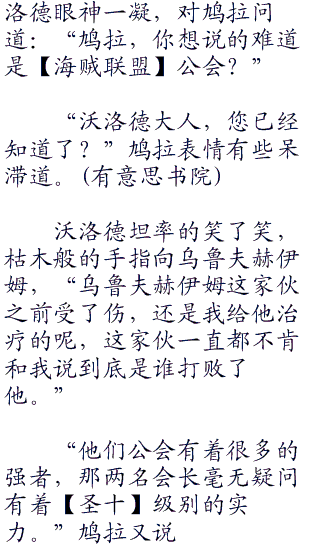 洛德眼神一凝，对鸠拉问
道：“鸠拉，你想说的难道
是【海贼联盟】公会？”
“沃洛德大人，您已经
知道了？”鸠拉表情有些呆
滞道。(有意思书院)
沃洛德坦率的笑了笑，
枯木般的手指向乌鲁夫赫伊
姆，“乌鲁夫赫伊姆这家伙
之前受了伤，还是我给他治
疗的呢，这家伙一直都不肯
和我说到底是谁打败了
他。”
“他们公会有着很多的
强者，那两名会长毫无疑问
有着【圣十】级别的实
力。”鸠拉又说